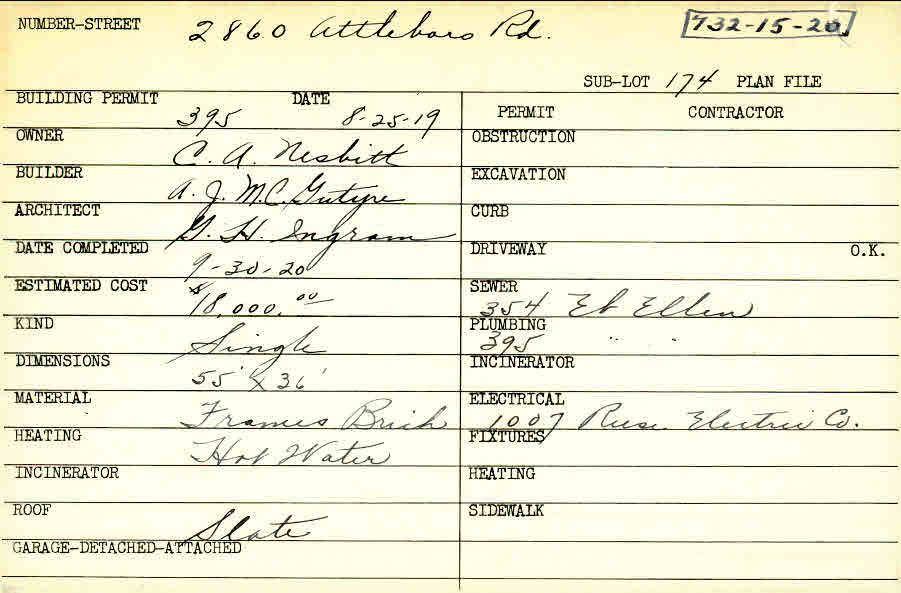 NUMBER-STREET 2860 Attleboro Rd. 732-15-20
SUB-LOT 174 PLAN FILE
BUILDING PERMIT 395 DATE 8-25-19
OWNER C. A. Nesbitt
BUILDER A. J. Mc.
ARCHITECT G. H. Ingram
DATE COMPLETED 9-30-20
ESTIMATED COST $18,000.00
KIND Single
DIMENSIONS 55' X 36'
MATERIAL Frame Brick
HEATING Hot Water
INCINERATOR
ROOF Slate
GARAGE-DETACHED-ATTACHED
PERMIT CONTRACTOR
OBSTRUCTION
EXCAVATION
CURB
DRIVEWAY O.K.
SEWER 354 Ellen
PLUMBING 395 " "
INCINERATOR
ELECTRICAL 1007 Electric Co.
FIXTURES
HEATING
SIDEWALK